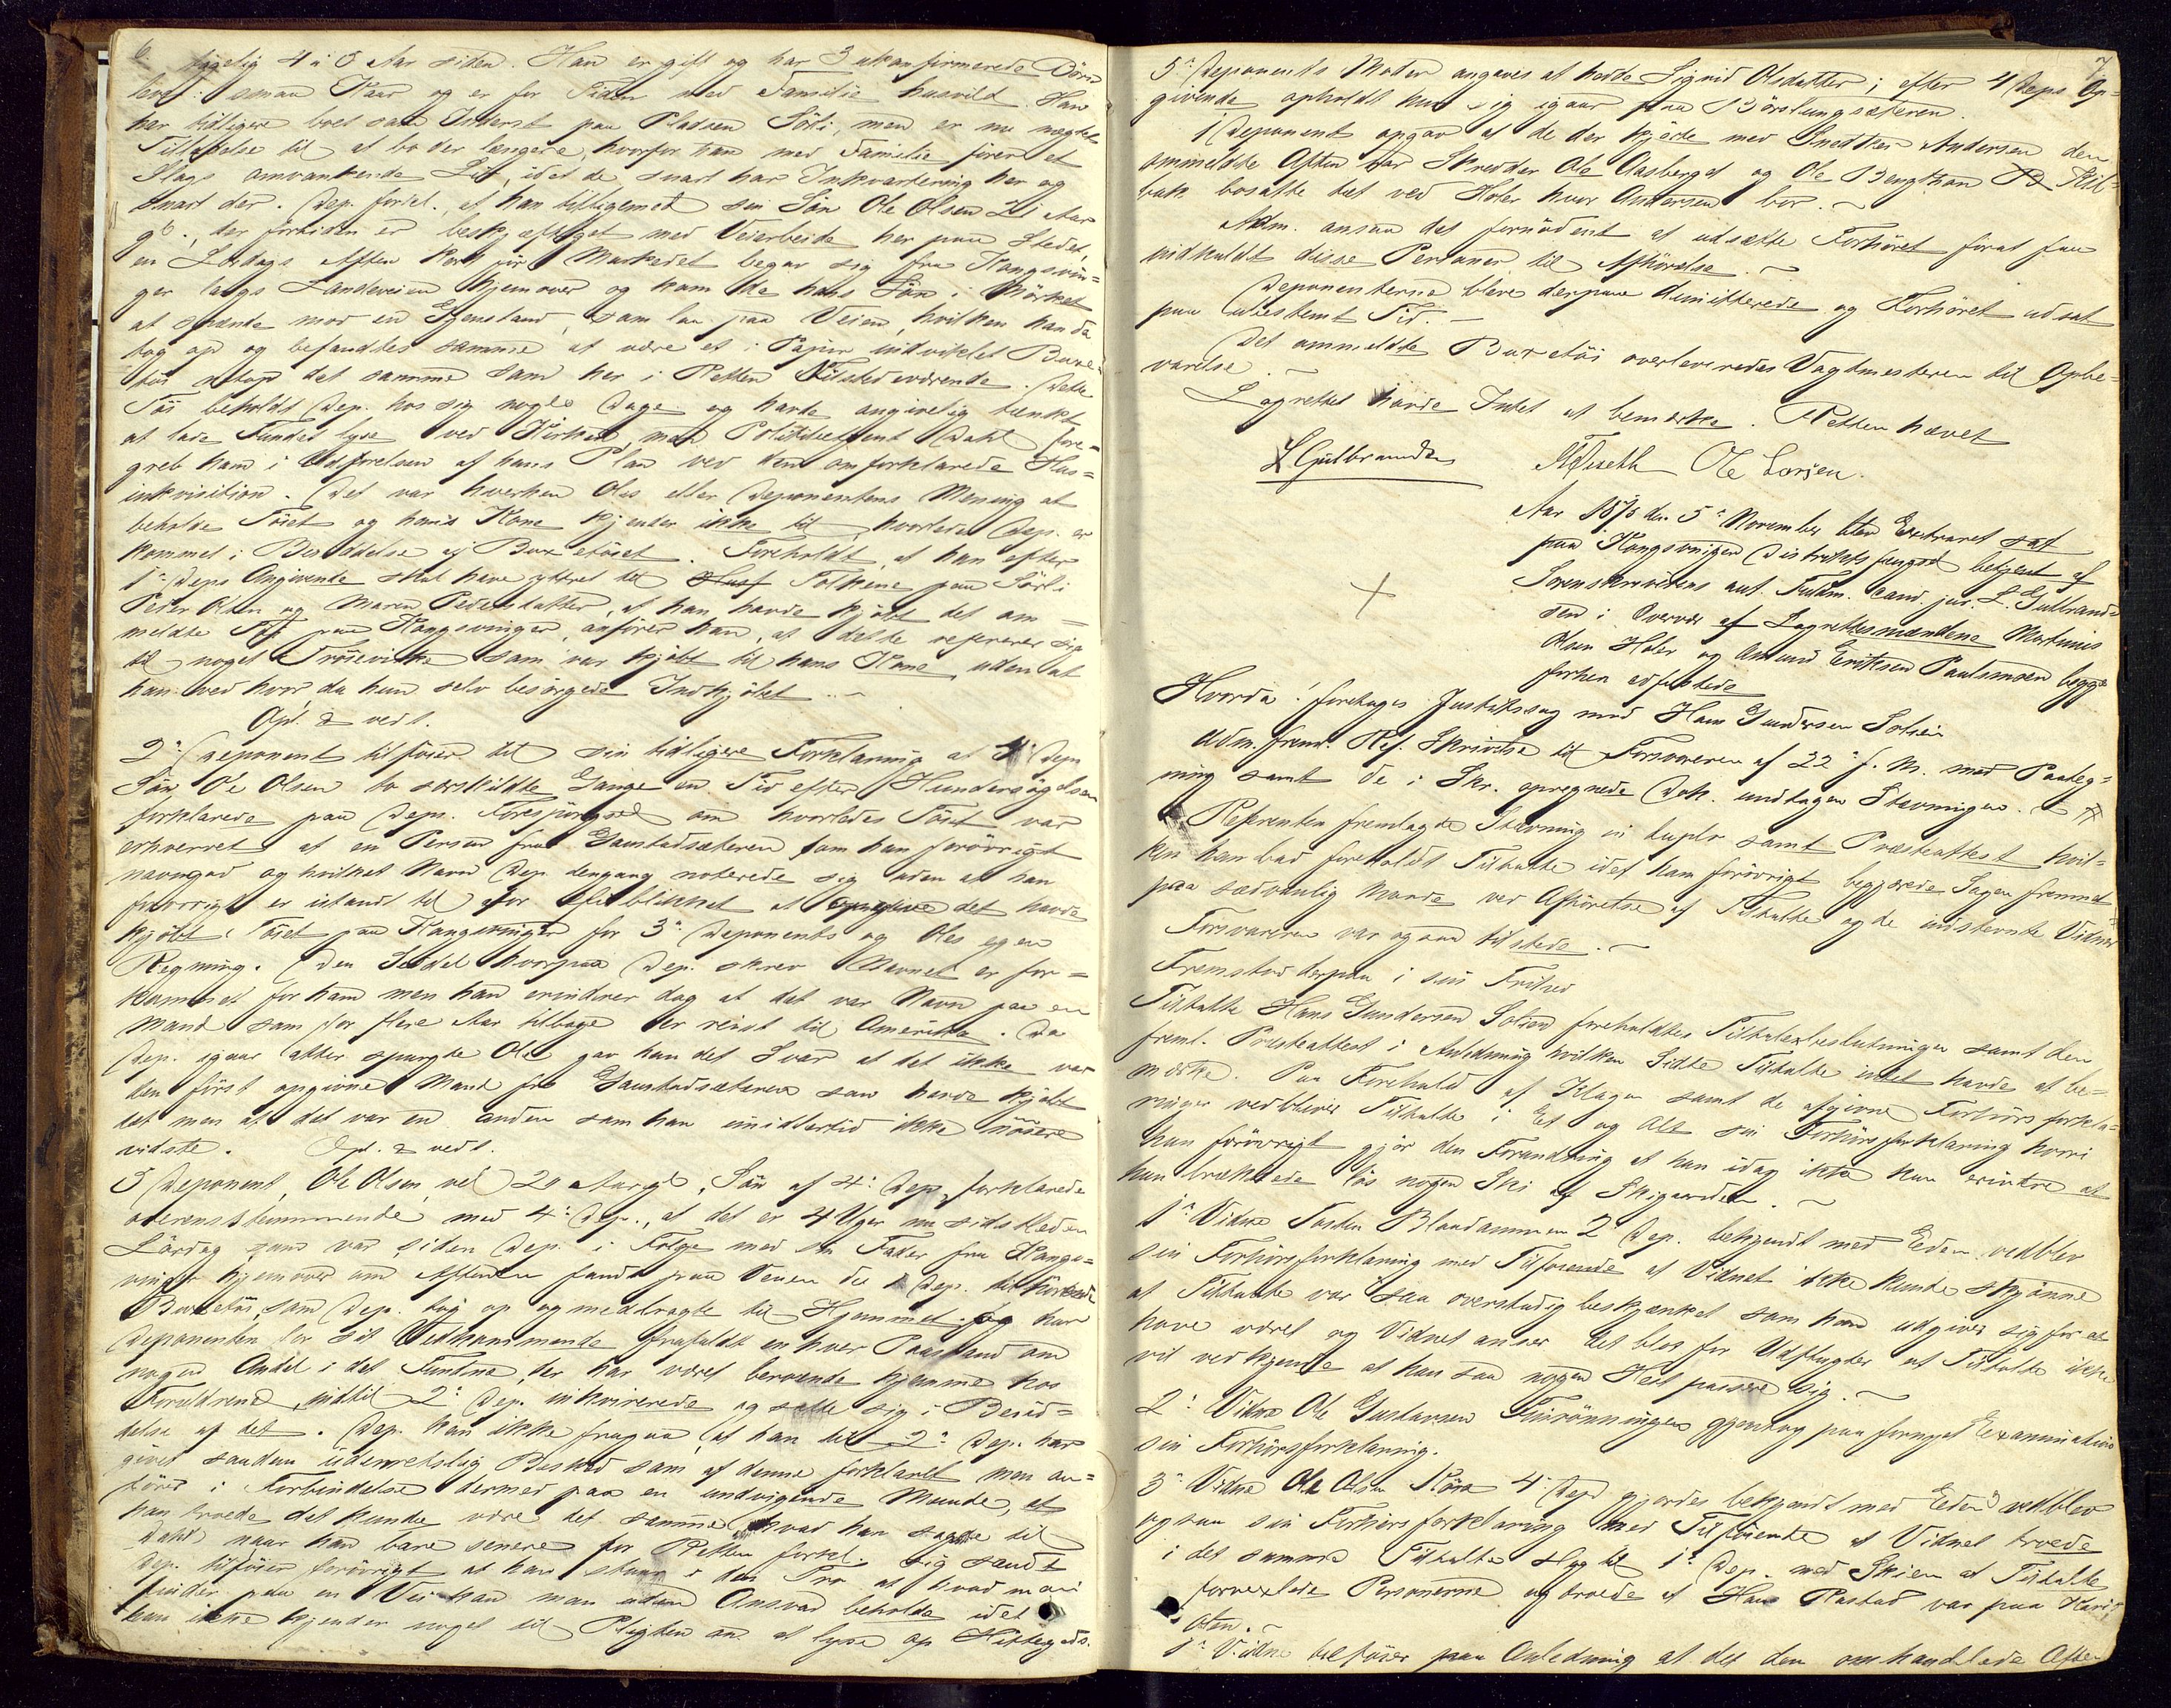 6
4 à 5 Aar siden. Han er gift og har 3 ukonfirmerede Börn
lever i smaa Kaar og er for Tiden med Familie husvild. Han
har tidligere boet som Inderst paa Pladsen Sörli, men er nu nægtet
Tilladelse til at bo der længere, hvorfor han med Familie förer et
Slags omvankende Liv, idet de snart har Inkvartering her og
snart der. Dep. forkl. at han tilligemed sin Sön Ole Olsen 21 Aar
gl., der fortiden er beskjæftiget med Veiarbeide her paa Stedet,
en Lördags Aften kort för Markedet begav sig fra Kongsvin-
ger langs Landeveien hjemover og kom da hans Sön i Mörket
at spænde mod en Gjenstand, som laa paa Veien, hvilken han da
tog op og befandtes samme at være et i Papir indviklet Buxe-
töi netop det samme som her i Retten Tilstedeværende. Dette
Töi beholdt Dep. hos sig nogle Dage og havde angivelig tænkt
at lade Fundet lyse ved Kirken, men Politibetjent Dahl fore-
greb ham i Udförelsen af hans Plan ved den omforklarede Hus-
inkvisition. Det var hverken Oles eller Deponentens Mening at
beholde Töiet og hans Kone kjender ikke til, hvorledes Dep. er
kommet i Besiddelse af Buxetöiet. Foreholdt, at han efter
1ste Deps Angivende skal have ytret til Folkene paa Sörli
Peder Olsen og Maren Pedersdatter, at han havde kjöbt det om-
meldte Töi paa Kongsvinger, anförer han, at dette refererer sig
til noget Tröievirke som var kjöbt til hans Kone, uden at
han ved hvor da hun selv besörgede Indkjöbet.
Opl. & vedt.
2den Deponent tilföier til sin tidligere Forklaring at 4de Deps
Sön Ole Olsen to særskildte Gange en Tid efter Undersögelsen
forklarede paa Deps. Forespörgsel om hvorledes Töiet var
erhvervet at en Person fra Gaustadsæteren som han forövrigt
navngav og hvilket Navn Dep. dengang noterede sig uden at han
forövrigt er istand til for Öieblikket at opgive det havde
kjöbt Töiet paa Kongsvinger for 3die Deponents og Oles egen
Regning. Den Seddel hvorpaa Dep. skrev Navnet er for-
kommet for ham men han erindrer dog at det var Navn paa en
Mand som for flere Aar tilbage er reist til Amerika. Da
Dep. igaar atter spurgte Ole gav han det Svar at det ikke var
den först opgivne Mand fra Gaustadsæteren som havde kjöbt
det men at det var en anden som han imidlertid ikke nöiere
vidste. Opl. & vedt.
5 Deponent, Ole Olsen, vel 20 Aar gl., Sön af 4de Dep. forklarede
overensstemmende med 4de Dep., at det er 4 Uger nu sidstleden
Lördag som var, siden Dep. i Fölge med sin Fader fra Kongs-
vinger hjemover om Aftenen fandt paa Veien det 1 Dep. tilhörende
Buxetöi, som Dep. tog op og medbragte til Hjemmet og har
Deponenten for sit Vedkommende frafaldt enhver Paastand om
nogen Andel i det Fundne, der har været beroende hjemme hos
Forældrene, indtil 2den Dep. inkvirerede og satte sig i Besid-
delse af det. Dep. kan ikke fragaa, at han til 2den Dep. har
givet saadan udenretslig Besked som af denne forklaret men an-
förer i Forbindelse dermed paa en undvigende Maade, at
han troede det kunde være det samme hvad han sagde til
Dahl naar han bare senere for Retten forkl. sig sandt
Dep. tilföier forövrigt at han staar i den Tro at hvad man
finder paa en Vei kan man uden Ansvar beholde idet
han ikke kjender noget til Pligten om at lyse op Hittegods.
7
5te Deponents Moder angaves at hedde Sigrid Olsdatter; efter 4 Deps Op-
givende opholdt hun sig igaar paa Börstungsæteren.
1 Deponent opgav at de der kjörte med Snedker Andersen den
ommeldte Aften var Skredder Ole Aasberget og Ole Bengtson
bak bosatte tæt ved Holer hvor Andersen bor.
Adm. ansaa det fornödent at udsætte Forhöret forat faa
indkaldt disse Personer til Afhörelse.
Deponenterne bleve derpaa dimitterede og Forhöret udsat
paa ubestemt Tid.
Det ommeldte Buxetöi overleveredes Vagtmesteren til Opbe-
varelse.
Lagrettet havde Intet at bemærke. Retten hævet
L Gulbrandsen Ole Larsen.
Aar 1878 den 5te November blev Extraret sat
paa Kongsvinger Distriktsfængsel betjent af
Sorenskriverens aut. Fuldm. cand. jur. L. Gulbrand-
sen i Overvær af Lagrettesmændene Martinius
Olsen Holer og Amund Eriksen Paulsmoen begge
forhen edfæstede
Hvorda! foretoges Justitssag mod Hans Gundersen Solien
Adm. freml. Ref. Skrivelse til Forsvareren af 22de f. M. med Paateg-
ning samt de i Skr. opregnede Dok. undtagen Stevningen.
Referenten fremlagde Stævning in duplo samt Præsteattest hvil-
ken han bad foreholdt Tiltalte idet han forövrigt begjærede Sagen fremmet
paa sædvanlig Maade ved Afhörelse af Tiltalte og de indstevnte Vidner
Forsvareren var ogsaa tilstede.
Fremstod derpaa i sin Frihed
Tiltalte Hans Gundersen Solien foreholdtes Tiltalebeslutningen samt den
freml. Presteattest i Anledning hvilken Sidste Tiltalte intet havde at be-
mærke. Paa Forehold af Klagen samt de afgivne Forhörsforkla-
ringer vedbliver Tiltalte i Et og Alt sin Forhörsforklaring hvori
han forövrigt gjör den Forandring at han idag ikke kan erindre at
han brækkede lös nogen Ski af Skigaarden.
1ste Vidne Torsten Blaadammen 2 Dep. bekjendt med Eden vedblev
sin Forhörsforklaring med Tilföiende at Vidnet ikke kunde skjönne
at Tiltalte var saa overstadig beskjænket som han udgiver sig for at
have været og Vidnet anser det blot for Udflugter at Tiltalte ikke
vil vedkjende at han saa nogen Hest passere sig.
2det Vidne Ole Gustavsen Finrönningen gjentog paa fornyet Examination
sin Forhörsforklaring.
3die Vidne Ole Olsen 4 Dep. gjordes bekjendt med Eden vedblev
ogsaa sin Forhörsforklaring med Tilföiende at Vidnet troede
i det samme Tiltalte slog til 1ste Dep. med Skien at Tiltalte
forvexlede Personerne og troede at Hans Rastad var paa Færd
Olsen.
1ste Vidne tilföier paa Anledning at det den omhandlede Aften